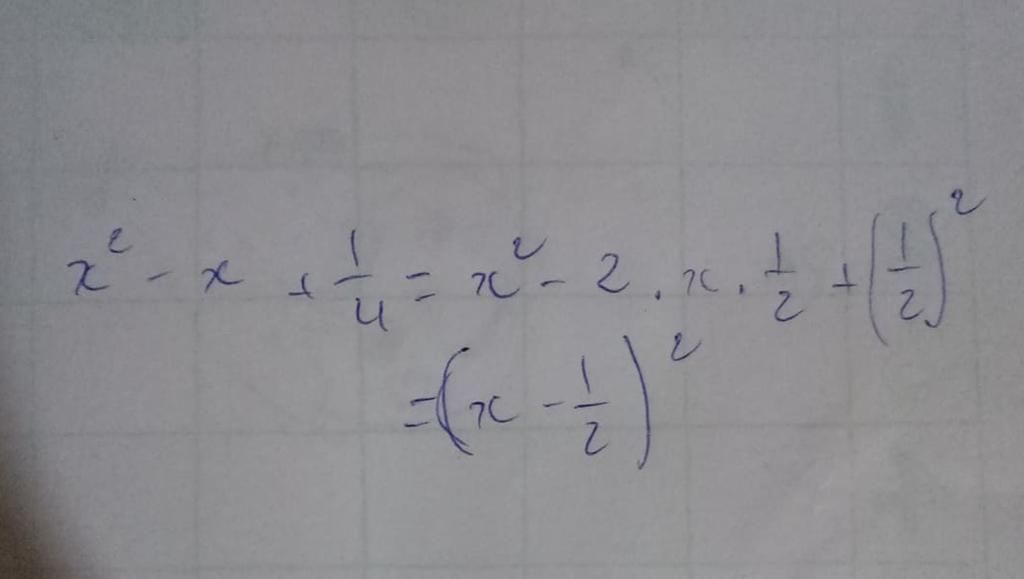 x² - x + 1/4 = x² - 2 . x . 1/2 + (1/2)²
= (x - 1/2)²